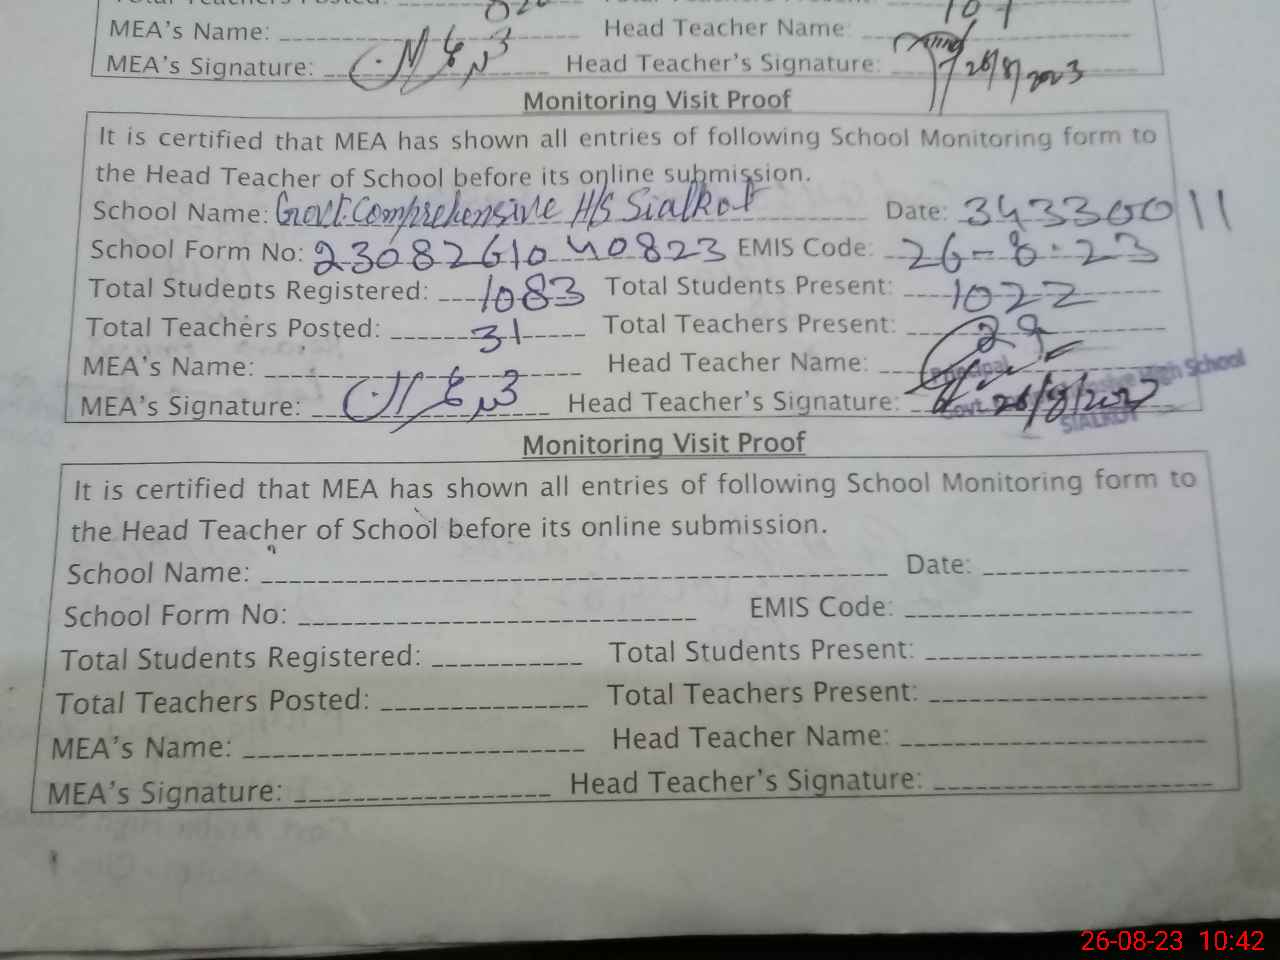 MEA's Name: Head Teacher Name:
MEA's Signature: Head Teacher's Signature: 26/8/2023
Monitoring Visit Proof
It is certified that MEA has shown all entries of following School Monitoring form to
the Head Teacher of School before its online submission.
School Name: Govt. Comprehensive H/S Sialkot Date: 34330011
School Form No: 2308261040823 EMIS Code: 26-8-23
Total Students Registered: 1083 Total Students Present: 1022
Total Teachers Posted: 31 Total Teachers Present: 29
MEA's Name: Head Teacher Name:
Principal
MEA's Signature: Head Teacher's Signature: 26/8/2023
Govt. High School
SIALKOT
Monitoring Visit Proof
It is certified that MEA has shown all entries of following School Monitoring form to
the Head Teacher of School before its online submission.
School Name: Date:
School Form No: EMIS Code:
Total Students Registered: Total Students Present:
Total Teachers Posted: Total Teachers Present:
MEA's Name: Head Teacher Name:
MEA's Signature: Head Teacher's Signature:
26-08-23 10:42